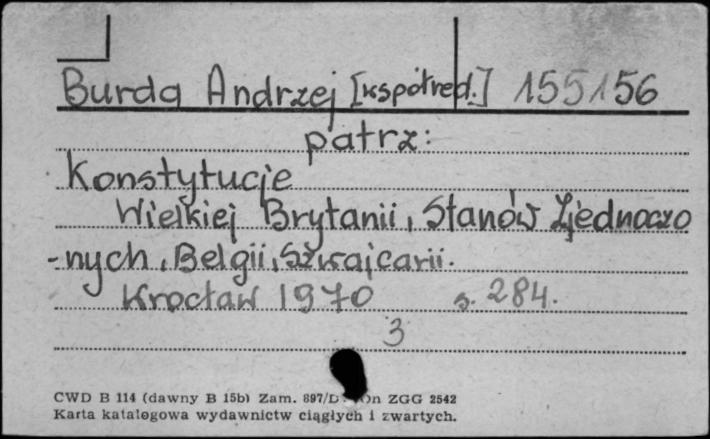 Burda Andrzej [współred.] 155156
patrz:
Konstytucje
Wielkiej Brytanii, Stanów Zjednoczo
-nych, Belgii, Szwajcarii.
Wrocław 1970 s. 284.
3
CWD B 114 (dawny B 15b) Zam. 897/D ZGG 2542
Karta katalogowa wydawnictw ciągłych i zwartych.